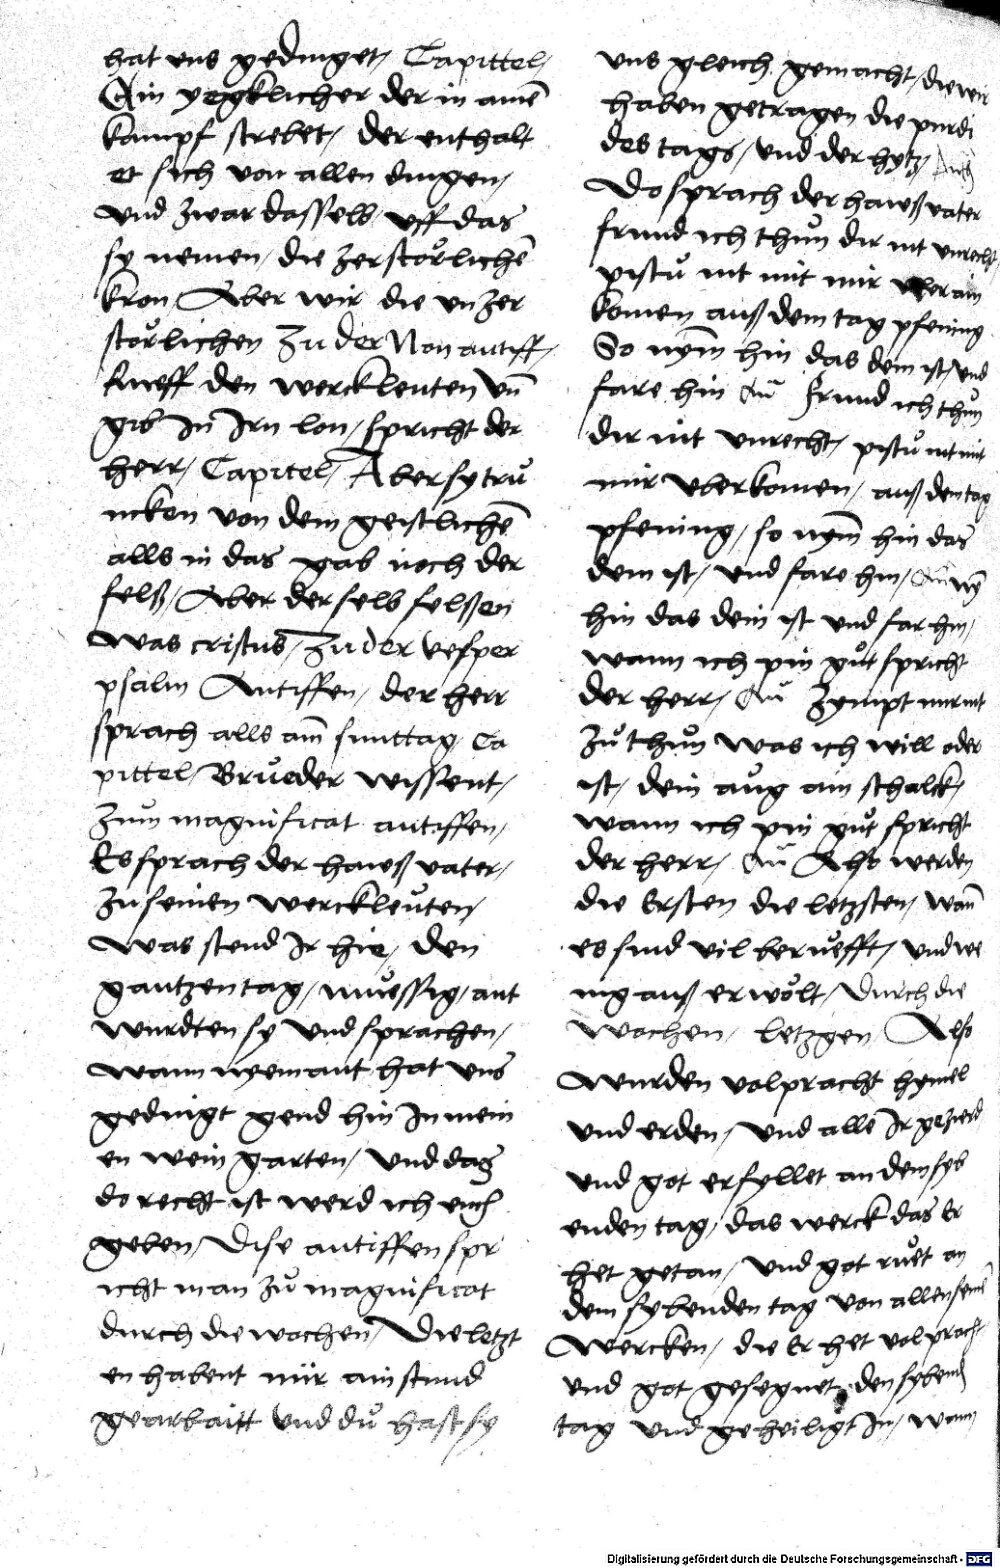 hat vns gedinget/ Capittel/
Ain yegklicher der in ainē
kampf strebet/ der enthalt
et sich von allen dingen/
vnd zwar dasselb vff das
sy nemen/ die zerstörlichē
kron Aber wir die vnzer
störlichen Zu der Non antiff/
rueff den werckleuten vn̄
gib In Irn lon/ spricht der
herr/ Capitel/ Aber sy tru
ncken von dem geistlichē
alls in das gab noch der
felß/ Aber der selb felßen
was cristus/ Zu der vesper
psalm Antiffen/ der herr
sprach alls am̄ sunttag/ Ca
pittel/ Brueder wissent/
Zům magnificat antiffen/
Es sprach der hawß vater/
zu seinen werckleuten/
Was stend Ir hie/ den
gantzen tag/ muessig/ ant
wurdten sy vnd sprachen/
wann nyemant hat vns
gedingt gend hin In mein
en wein garten/ vnd das
do recht ist werd ich euch
geben/ Dise antiffen spr
icht man zů magnificat
durch die wochen/ Die letzt
en habent nür ain stund
gearbaitt vnd dů hast sy
vns gleich gemacht/ die wir
haben getragen die purdi
des tags/ vnd der hytz/
Do sprach der hawß vater
frund ich thůn dir nit vnrecht
pistů nit mit mir vberain
komen auß dem tag pfening
So nym̄ hin das dein ist/ vnd
fare hin Frund ich thůn
dir nit vnrecht/ pistů nit mit
mir vberkomen/ auß den tag
pfening/ so nym̄ hin das
dein ist/ vnd fare hin/ ny̅
hin das dein ist vnd far hin/
wann ich pin gůt spricht
der herr/ Zympt mir nit
zů thůn was ich will oder
ist/ dein aůg ain schalck/
wann ich pin gůt spricht
der herr/ Also werden
die Ersten die letzsten/ wan̄
es sind vil berüefft/ vnd we
nig auß erwölt/ Durch die
wochen/ letzgen Also
wurden volpracht hymel
vnd erden/ vnd alle Ir gezierd
vnd got erfyllet an dem syb
enden tag/ das werck das Er
het getan/ vnd got růet an
dem sybenden tag von allen seinē
wercken/ die Er het volpracht
vnd got gesegnet den sybend
tag vnd geheiligt In/ wann
Digitalisierung gefördert durch die Deutsche Forschungsgemeinschaft - DFG